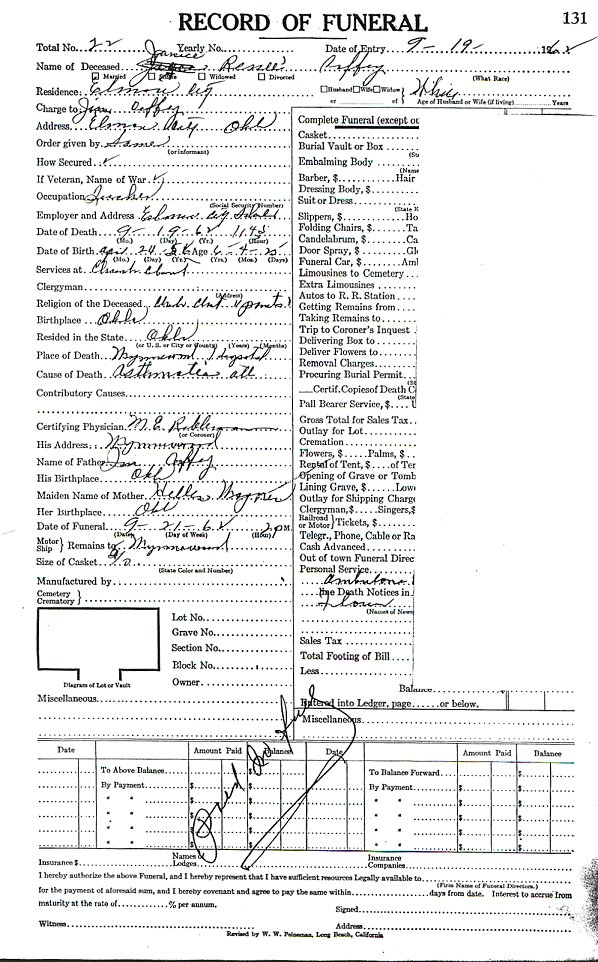 RECORD OF FUNERAL
131
Total No. 22 Yearly No. Date of Entry 9-19-
Janice
Name of Deceased Renee Caffey
Married Single Widowed Divorced (What Race)
Residence: Elmore City Husband Wife Widow } White
or of Age of Husband or Wife (if living) Years
Charge to Jim Caffey
Address Elmore City Okl
Order given by Same
(or informant)
How Secured
If Veteran, Name of War
Occupation
(Social Security Number)
Employer and Address Elmore City
Date of Death 9-19-62 11:45
(Mo.) (Day) (Yr.) (Hour)
Date of Birth April 24 56 Age 6-4-25
(Mo.) (Day) (Yr.) (Yrs.) (Mos.) (Days)
Services at Church Christ
Clergyman
(Address)
Religion of the Deceased
Birthplace Okla
Resided in the State Okla
(or U. S. or City or County) (Years) (Months)
Place of Death Wynnewood Hospital
Cause of Death Asthmatic
Contributory Causes
Certifying Physician M. E. Robberson
(or Coroner)
His Address Wynnewood
Name of Father Jim Caffey
His Birthplace Okl
Maiden Name of Mother Hellen
Her Birthplace Okl
Date of Funeral 9-21-62 2 P M.
(Date) (Day of Week) (Hour)
Motor
Ship } Remains to Wynnewood
Size of Casket
(State Color and Number)
Manufactured by
Cemetery
Crematory }
Lot No.
Grave No.
Section No.
Block No.
Owner
Diagram of Lot or Vault
Complete Funeral (except ou
Casket
Burial Vault or Box
(St
Embalming Body
(Name
Barber, $ Hair
Dressing Body, $
Suit or Dress
(State K
Slippers, $ Ho
Folding Chairs, $ Ta
Candelabrum, $ Ca
Door Spray, $ Gl
Funeral Car, $ Aml
Limousines to Cemetery
Extra Limousines
Autos to R. R. Station
Getting Remains from
Taking Remains to
Trip to Coroner's Inquest
Delivering Box to
Deliver Flowers to
Removal Charges
Procuring Burial Permit
(St
Certif. Copies of Death C
(State
Pall Bearer Service, $
Gross Total for Sales Tax
Outlay for Lot
Cremation
Flowers, $ Palms, $
Rental of Tent, $ of Ter
Opening of Grave or Tomb
Lining Grave, $ Lowe
Outlay for Shipping Charge
Clergyman, $ Singers, $
Railroad
or Motor } Tickets, $
Telegr., Phone, Cable or Ra
Cash Advanced
Out of town Funeral Direc
Personal Service
Ambulance
line Death Notices in
Flowers
(Names of News
Sales Tax
Total Footing of Bill
Less
Balance
Entered into Ledger, page or below.
Miscellaneous
Miscellaneous
Date Amount Paid Balance Date Amount Paid Balance
To Above Balance $ To Balance Forward $
By Payment $ By Payment $
" " $ " " $
" " $ " " $
" " $ " " $
" " $ " " $
Paid
Insurance $ Names of
Lodges Insurance
Companies
I hereby authorize the above Funeral, and I hereby represent that I have sufficient resources Legally available to
(Firm Name of Funeral Directors.)
for the payment of aforesaid sum, and I hereby covenant and agree to pay the same within days from date. Interest to accrue from
maturity at the rate of % per annum. Signed
Witness Address
Revised by W. W. Peineman, Long Beach, California